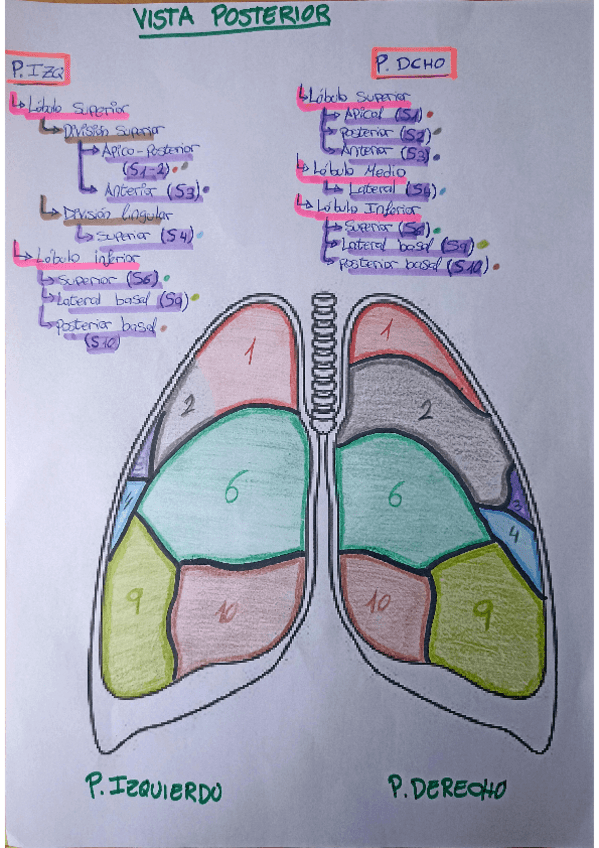 VISTA POSTERIOR
P. IZQ
↳ Lóbulo Superior
↳ División Superior
↳ Apico-Posterior
(S1-2)
↳ Anterior (S3)
↳ División Lingular
↳ Superior (S4)
↳ Lóbulo inferior
↳ Superior (S6)
↳ Lateral basal (S9)
↳ Posterior basal
(S10)
P. DCHO
↳ Lóbulo Superior
↳ Apical (S1)
↳ Posterior (S2)
↳ Anterior (S3)
↳ Lóbulo Medio
↳ Lateral (S4)
↳ Lóbulo Inferior
↳ Superior (S6)
↳ Lateral basal (S9)
↳ Posterior basal (S10)
1
2
6
9
10
1
2
3
4
6
10
9
P. IZQUIERDO
P. DERECHO